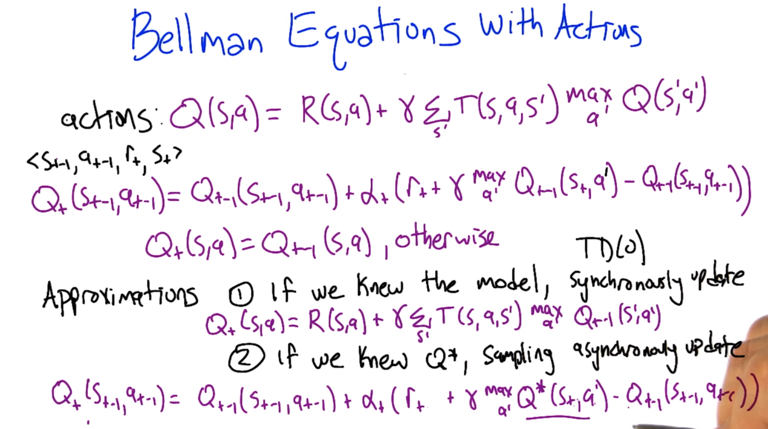 Bellman Equations With Actions
actions: Q(s,a) = R(s,a) + γ Σ_s' T(s,a,s') max_a' Q(s',a')
<s_t-1, a_t-1, r_t, s_t>
Q_t(s_t-1, a_t-1) = Q_t-1(s_t-1, a_t-1) + α_t(r_t + γ max_a' Q_t-1(s_t, a') - Q_t-1(s_t-1, a_t-1))
Q_t(s,a) = Q_t-1(s,a), otherwise
TD(0)
Approximations ① If we knew the model, synchronously update
Q_t(s,a) = R(s,a) + γ Σ_s' T(s,a,s') max_a' Q_t-1(s',a')
② If we knew Q*, sampling asynchronously update
Q_t(s_t-1, a_t-1) = Q_t-1(s_t-1, a_t-1) + α_t(r_t + γ max_a' Q*(s_t, a') - Q_t-1(s_t-1, a_t-1))